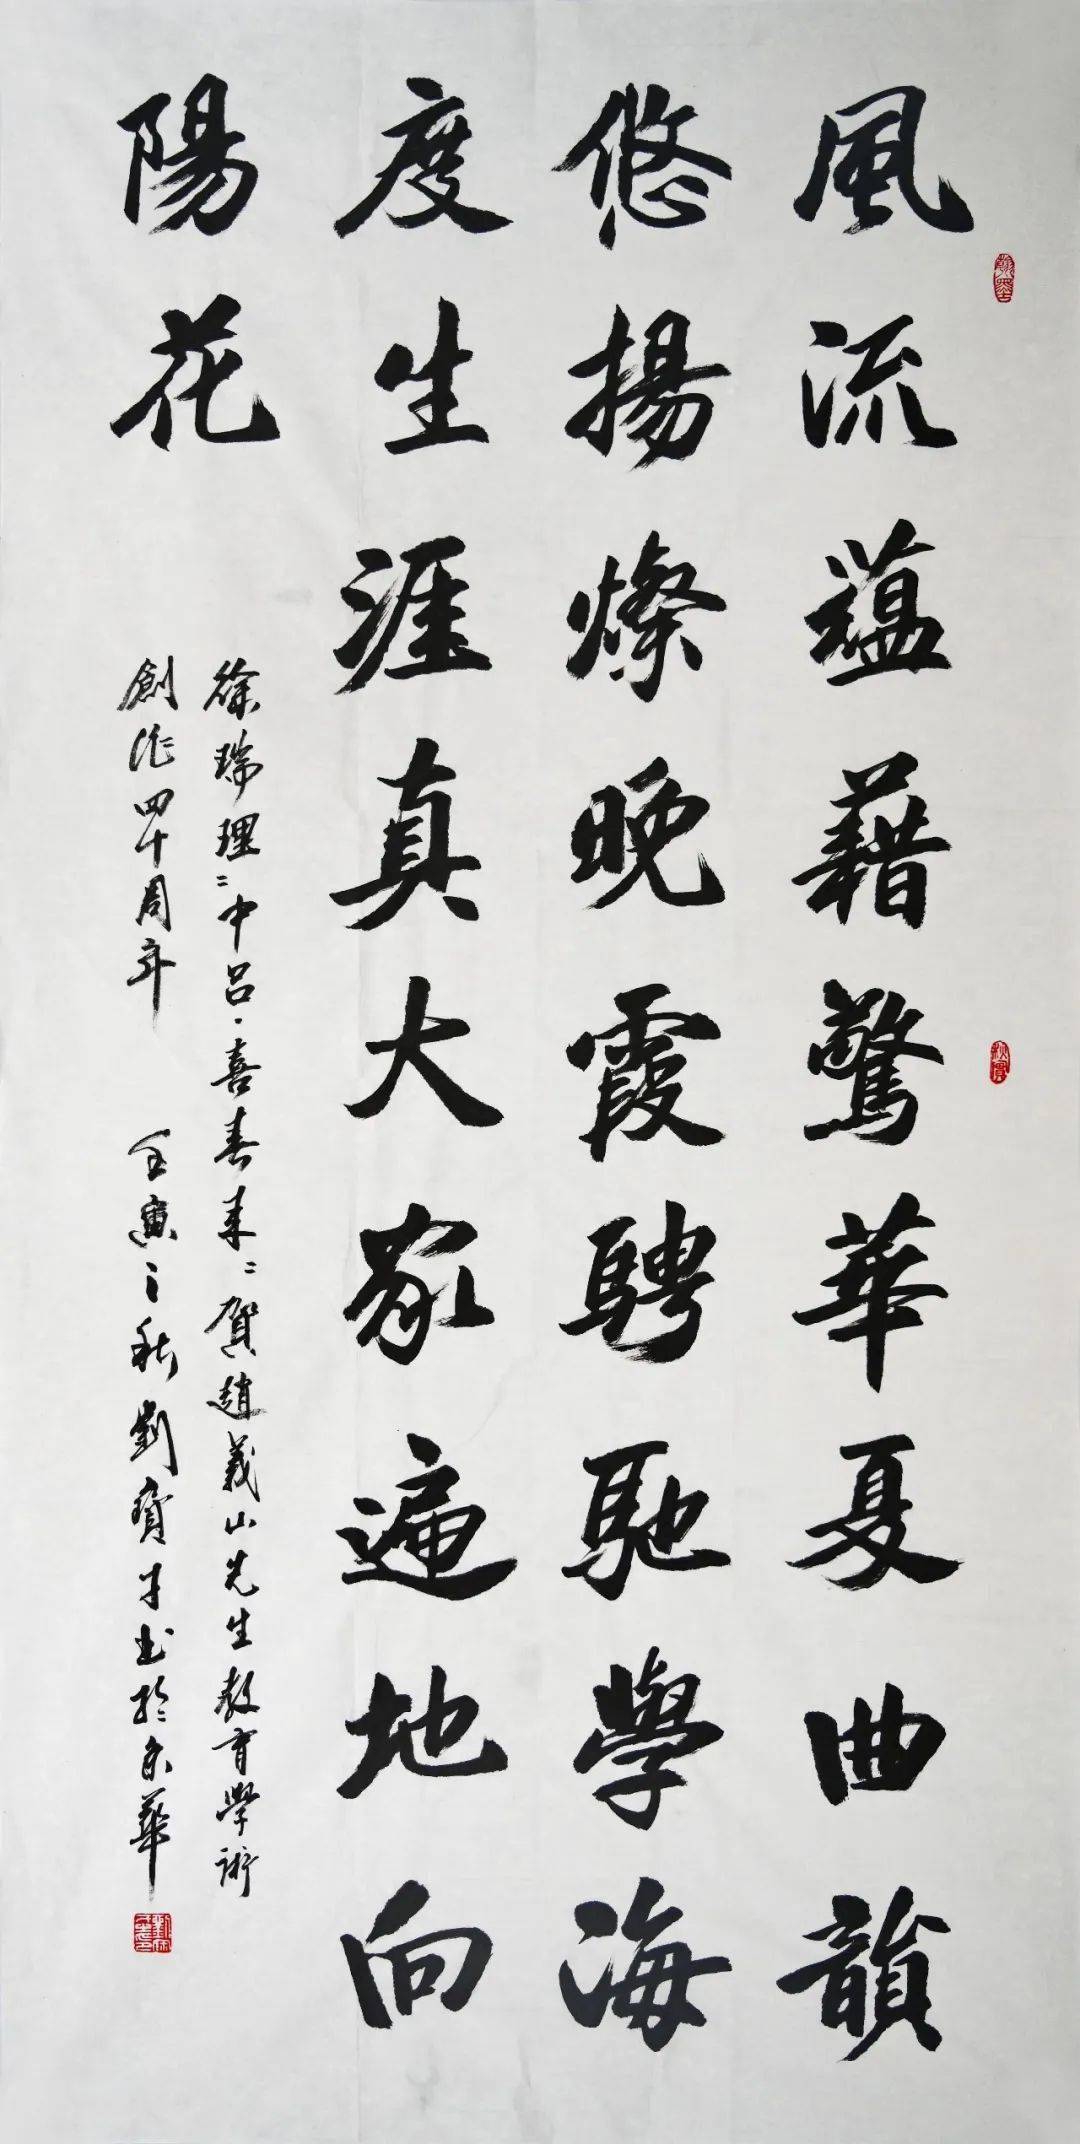 風流蘊藉驚華夏曲韻
悠揚燦晚霞騁馳學海
度生涯真大家遍地向
陽花
徐瑞理〓中呂·喜春来〓賀趙義山先生教育學術
創作四十周年 壬寅之秋劉寶才書於京華